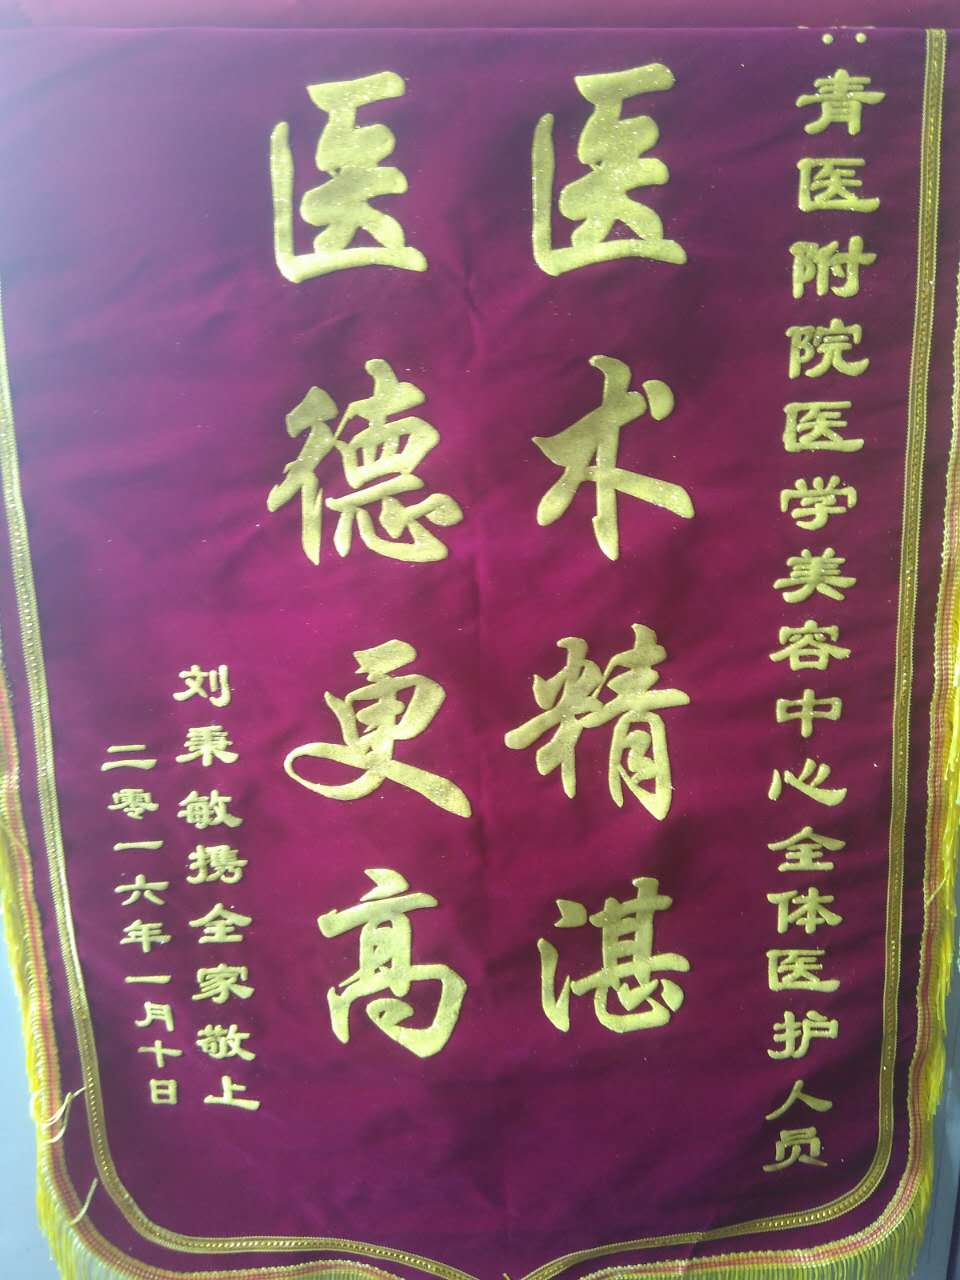 :青医附院医学美容中心全体医护人员
医术精湛
医德更高
刘秉敏携全家敬上
二零一六年一月十日